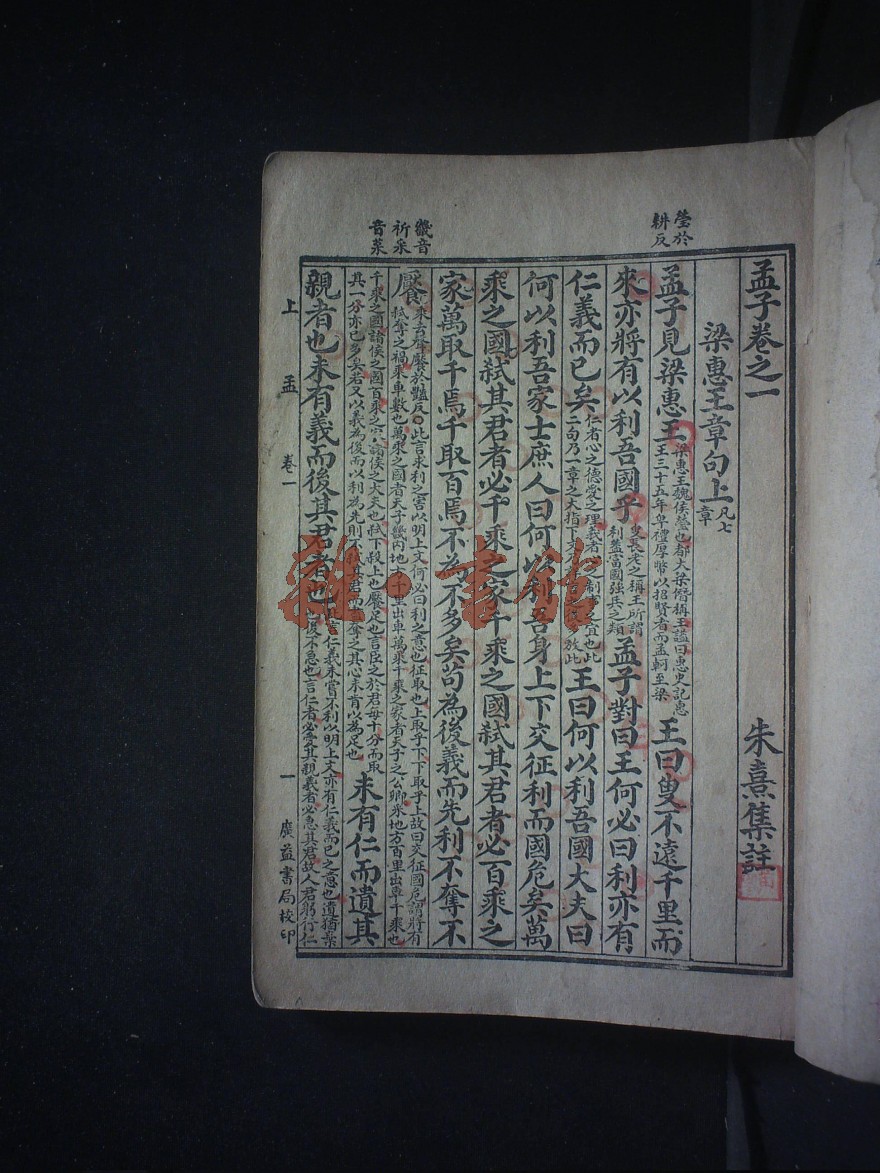 孟子卷之一
朱熹集註
梁惠王章句上凡七章
孟子見梁惠王梁惠王魏侯罃也都大梁僭稱王謚曰惠史記惠王三十五年卑禮厚幣以招賢者而孟軻至梁王曰叟不遠千里而
來亦將有以利吾國乎叟長老之稱王所謂利蓋富國強兵之類孟子對曰王何必曰利亦有
仁義而已矣仁者心之德愛之理義者心之制事之宜也此二句乃一章之大指下文乃詳言之後多放此王曰何以利吾國大夫曰
何以利吾家士庶人曰何以利吾身上下交征利而國危矣萬
乘之國弒其君者必千乘之家千乘之國弒其君者必百乘之
家萬取千焉千取百焉不為不多矣苟為後義而先利不奪不
饜乘去聲饜於豔反〇此言求利之害以明上文何必曰利之意也征取也上取乎下下取乎上故曰交征國危謂將有弒奪之禍乘車數也萬乘之國者天子畿內地方千里出車萬乘千乘之家者天子之公卿采地方百里出車千乘也
千乘之國諸侯之國百乘之家諸侯之大夫也弒下殺上也饜足也言臣之於君每十分而取其一分亦已多矣若又以義為後而以利為先則不弒其君而盡奪之其心未肯以為足也未有仁而遺其
親者也未有義而後其君者也此言仁義未嘗不利以明上文亦有仁義而已之意也遺猶棄也後不急也言仁者必愛其親義者必急其君故人君躬行仁
罃於耕反
畿音祈采音菜
上孟 卷一 一 廣益書局校印
雜·書館